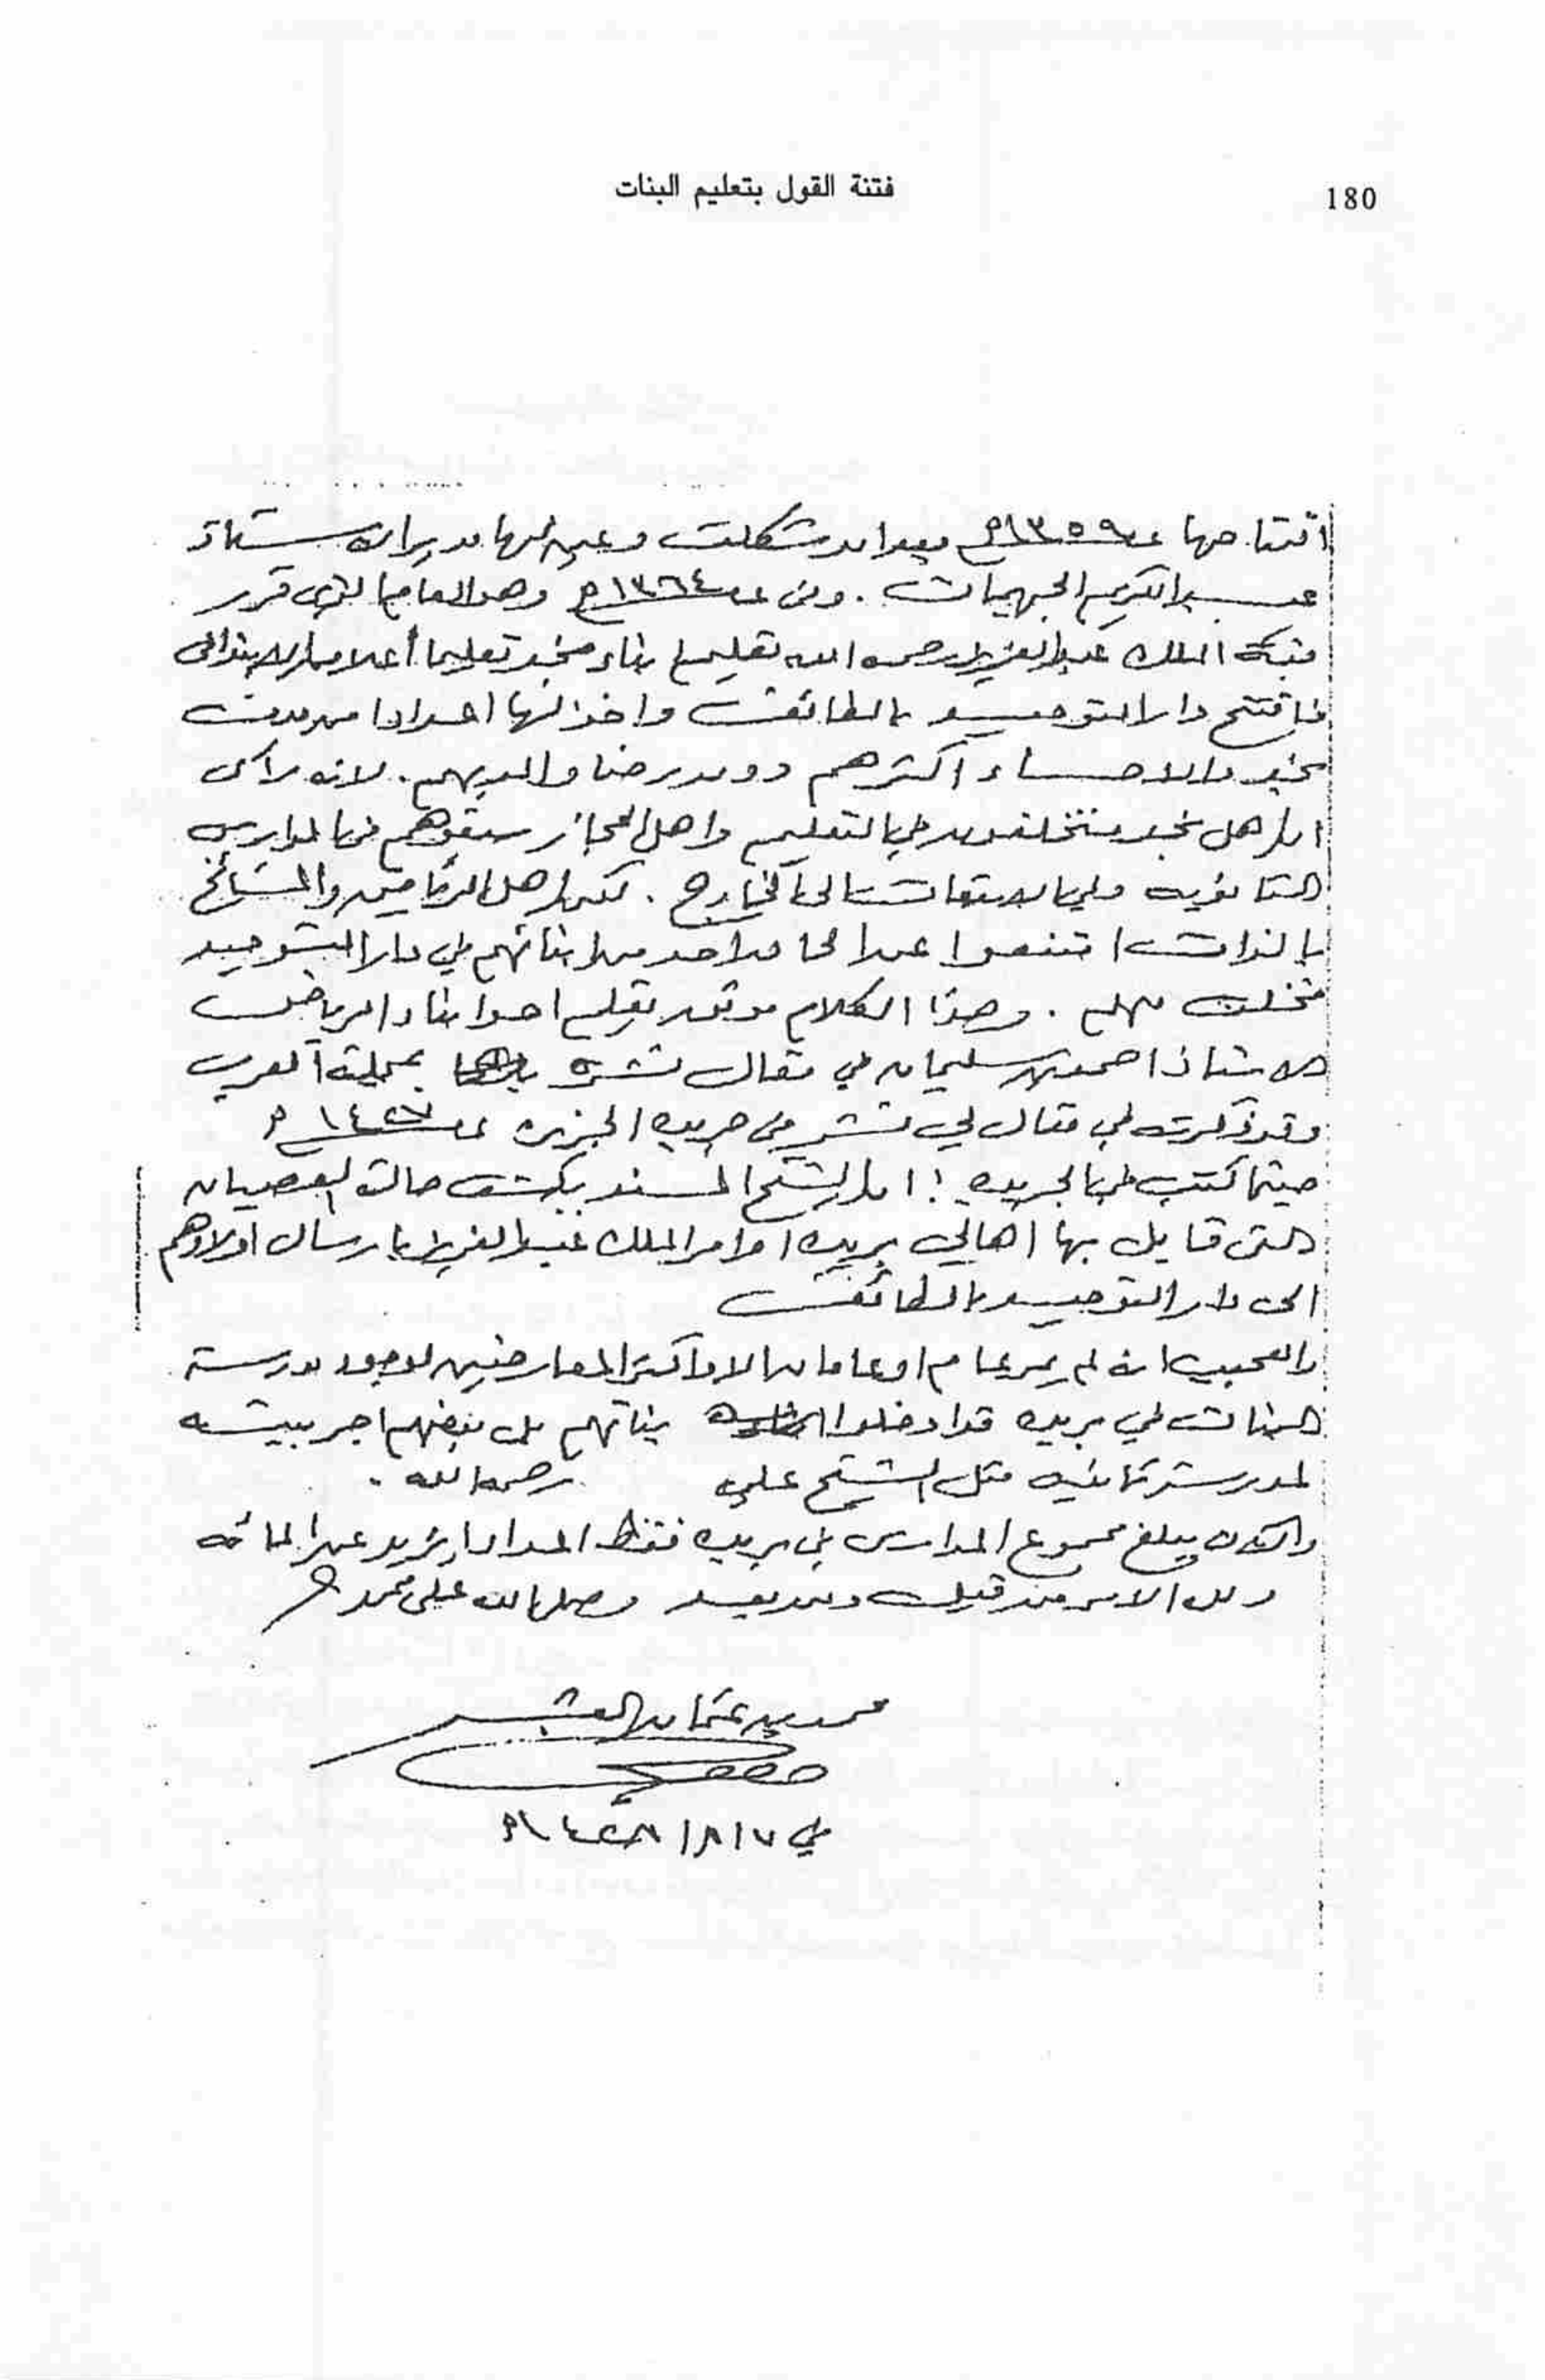 180
فتنة القول بتعليم البنات
افتتاحها عام ١٣٥٩هـ وبعد ان شكلت وعين لها مديرا الاستاذ
عبدالكريم الجهيمان . وفي عام ١٣٦٤هـ وهو العام الذي قرر
الملك عبدالعزيز رحمه الله تعليم ابناء نجد تعليما أعلا من الابتدائي
فافتتح دار التوحيد بالطائف واخذ لها اعدادا من مدن
نجد والاحساء أكثرهم دون رضا والديهم . لانه رأى
ان اهل نجد متخلفون في التعليم واهل الحجاز سبقوهم في المدارس
الثانويه وفي الابتعاث الى الخارج . لكن اهل الرياض والمشائخ
بالذات امتنعوا عن الحاق احد من ابنائهم في دار التوحيد
. وهذا الكلام موثق بقلم احد ابناء الرياض
الاستاذ احمد بن سليمان في مقال نشره بمجلة العرب
وقد ذكرته في مقال لي نشر في جريدة الجزيره عام ١٤٢٧هـ
حينما كتب في الجريده ! ان الشيخ المسند يكشف حالة العصيان
التي قابل بها اهالي بريده اوامر الملك عبدالعزيز بارسال اولادهم
الى دار التوحيد بالطائف
والعجيب انه لم يمر عام او عامان الا واكثر المعارضين لوجود مدرسة
البنات في بريده قد ادخلوا بناتهم بل بعضهم اجر بيته
لمدرسة ثانيه مثل الشيخ علي رحمه الله .
والآن يبلغ مجموع المدارس في بريده فقط اعدادا يزيد عن المائه
ولله الامر من قبل ومن بعد وصلى الله على محمد
محمد بن عثمان البشر
في ٧ / ٨ / ١٤٢٨هـ